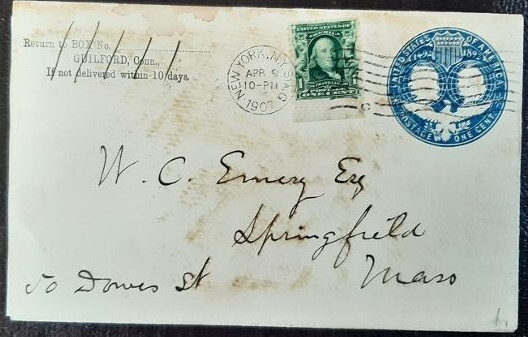 Return to BOX No.
GUILFORD, Conn.,
If not delivered within 10 days.
NEW YORK, N.Y.
APR 9
10-PM
1907
UNITED STATES OF AMERICA
1492 1892
POSTAGE ONE CENT
W. C. Emery Esq
Springfield
Mass
50 Dowes St